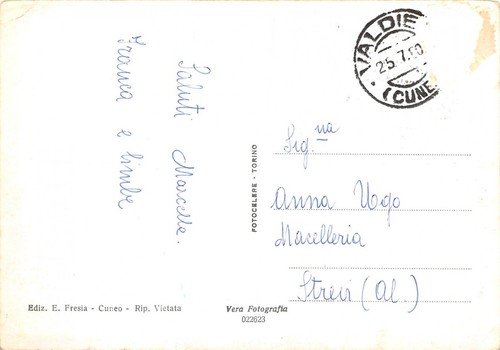 Saluti Marcella.
Franca e bimbe
VALDIE
25.7.60
(CUNE
Sig.na
Anna Ugo
Macelleria
Strevi (Al.)
FOTOCELERE - TORINO
Ediz. E. Fresia - Cuneo - Rip. Vietata
Vera Fotografia
022623